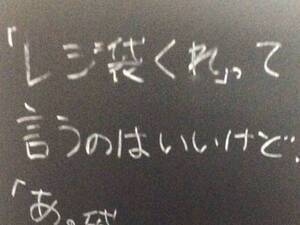 「レジ袋くれ」って
言うのはいいけど、
「あ。袋